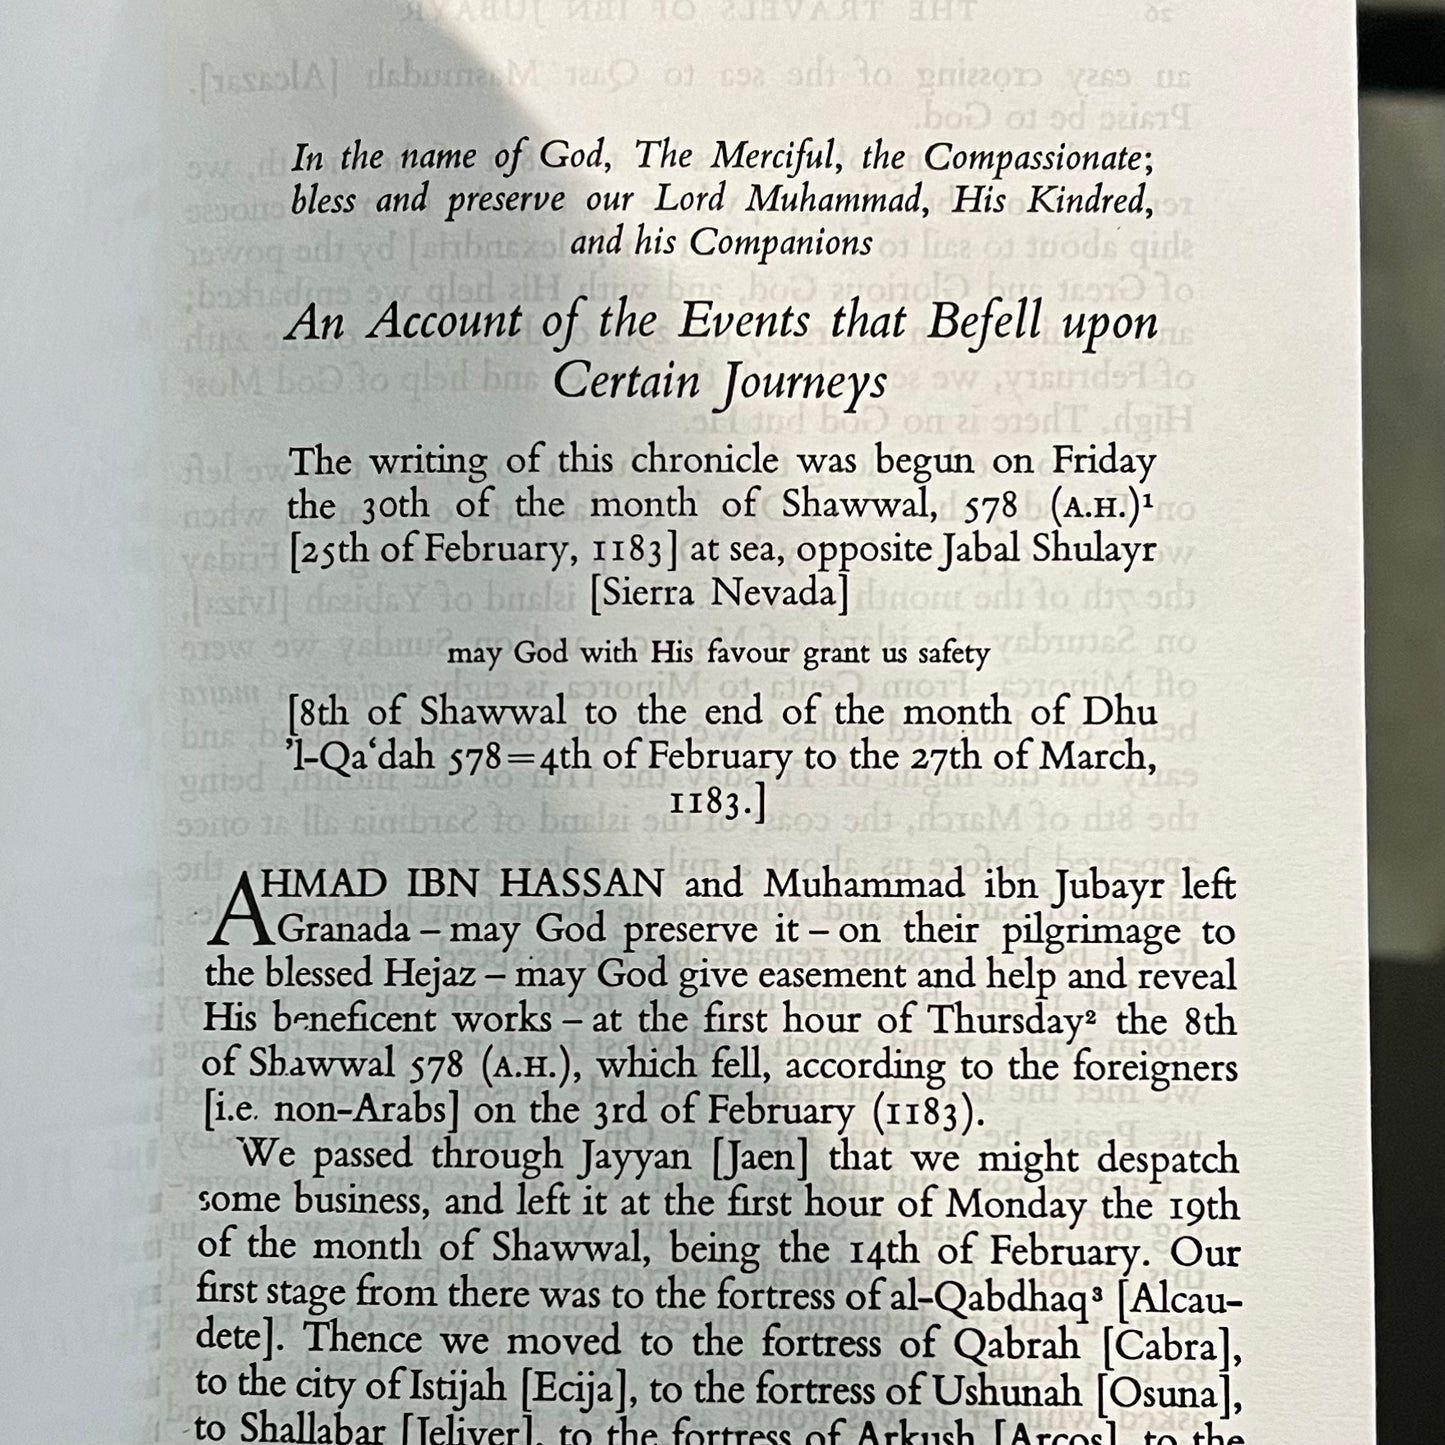 In the name of God, The Merciful, the Compassionate;
bless and preserve our Lord Muhammad, His Kindred,
and his Companions
An Account of the Events that Befell upon
Certain Journeys
The writing of this chronicle was begun on Friday
the 30th of the month of Shawwal, 578 (A.H.)¹
[25th of February, 1183] at sea, opposite Jabal Shulayr
[Sierra Nevada]
may God with His favour grant us safety
[8th of Shawwal to the end of the month of Dhu
’l-Qa‘dah 578=4th of February to the 27th of March,
1183.]
AHMAD IBN HASSAN and Muhammad ibn Jubayr left
Granada – may God preserve it – on their pilgrimage to
the blessed Hejaz – may God give easement and help and reveal
His beneficent works – at the first hour of Thursday² the 8th
of Shawwal 578 (A.H.), which fell, according to the foreigners
[i.e. non-Arabs] on the 3rd of February (1183).
We passed through Jayyan [Jaen] that we might despatch
some business, and left it at the first hour of Monday the 19th
of the month of Shawwal, being the 14th of February. Our
first stage from there was to the fortress of al-Qabdhaq³ [Alcau-
dete]. Thence we moved to the fortress of Qabrah [Cabra],
to the city of Istijah [Ecija], to the fortress of Ushunah [Osuna],
to Shallabar [Jeliver], to the fortress of Arkush [Arcos], to the